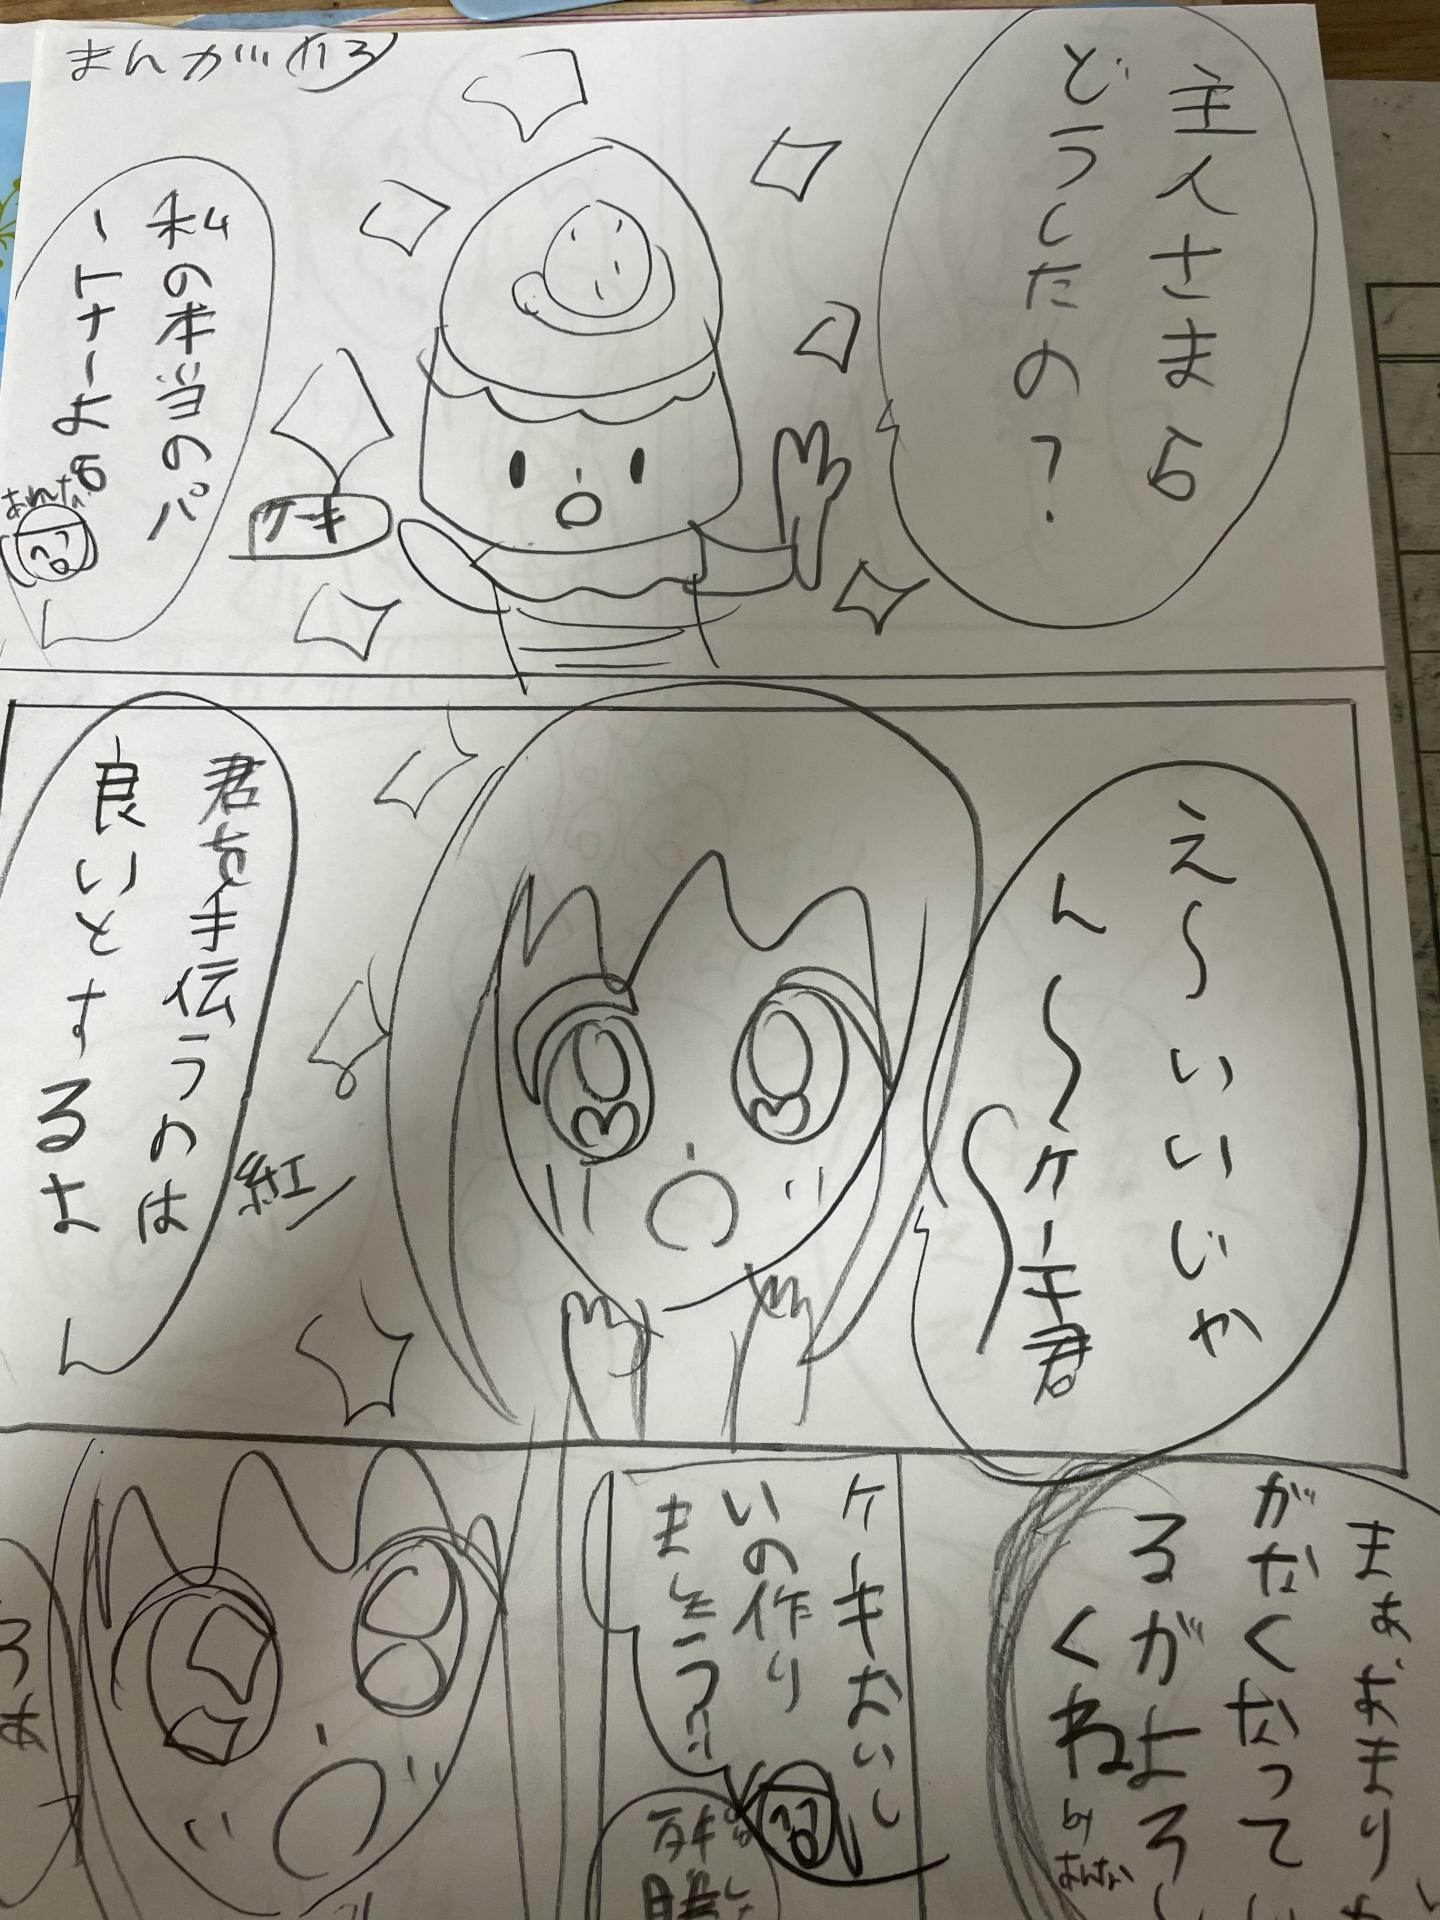 まんが
主人さまら
どうしたの？
私の本当のパ
ートナーよ
あんな
ケーキ
え〜いいじゃ
ん〜ケーキ君
君を手伝うのは
良いとするよ
紅
まぁあまり
がなくなってい
るがよろし
くね
by
あんな
ケーキおいし
いの作り
ましょう!!